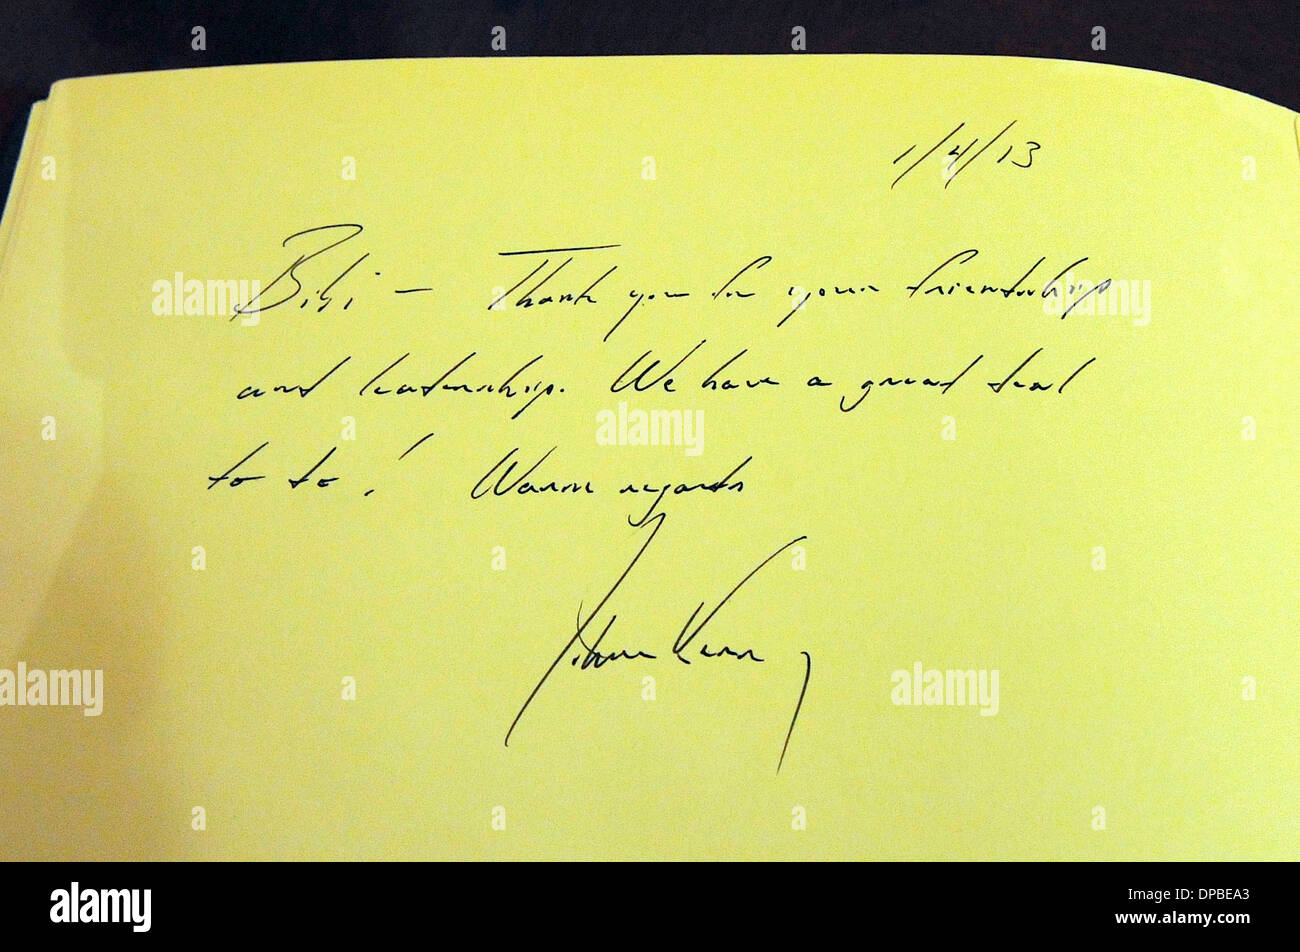 1/4/13
Bibi – Thank you for your friendship
and leadership. We have a great deal
to do! Warm regards
alamy
alamy
alamy
alamy
alamy
alamy
www.alamy.com
Image ID: DPBEA3